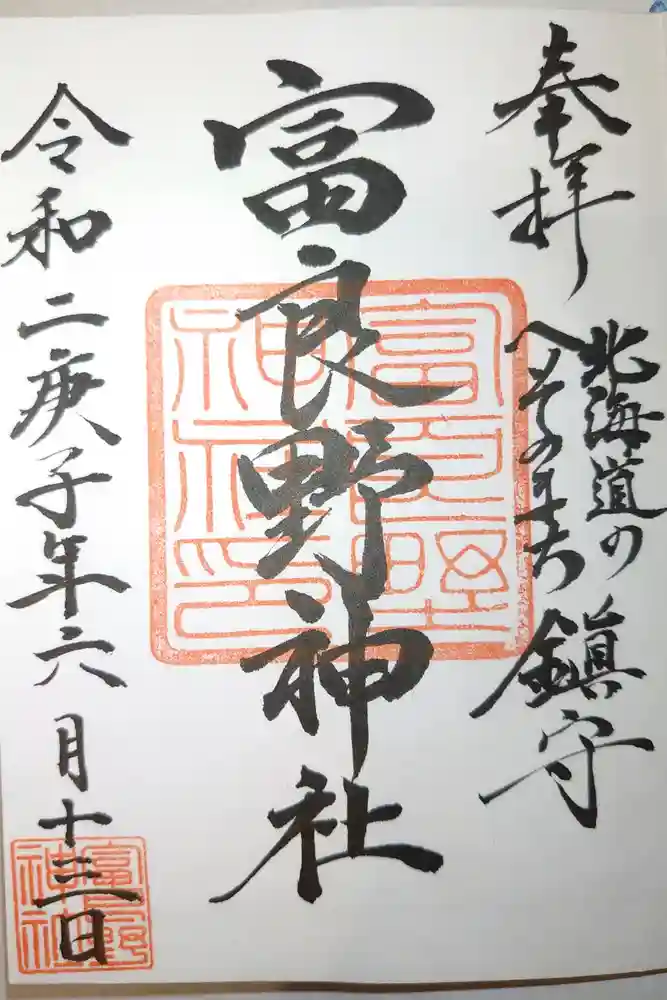 奉拝
北海道の
へそのまち
鎮守
富良野神社
富良野神社印
令和二庚子年六月十三日
富良野神社